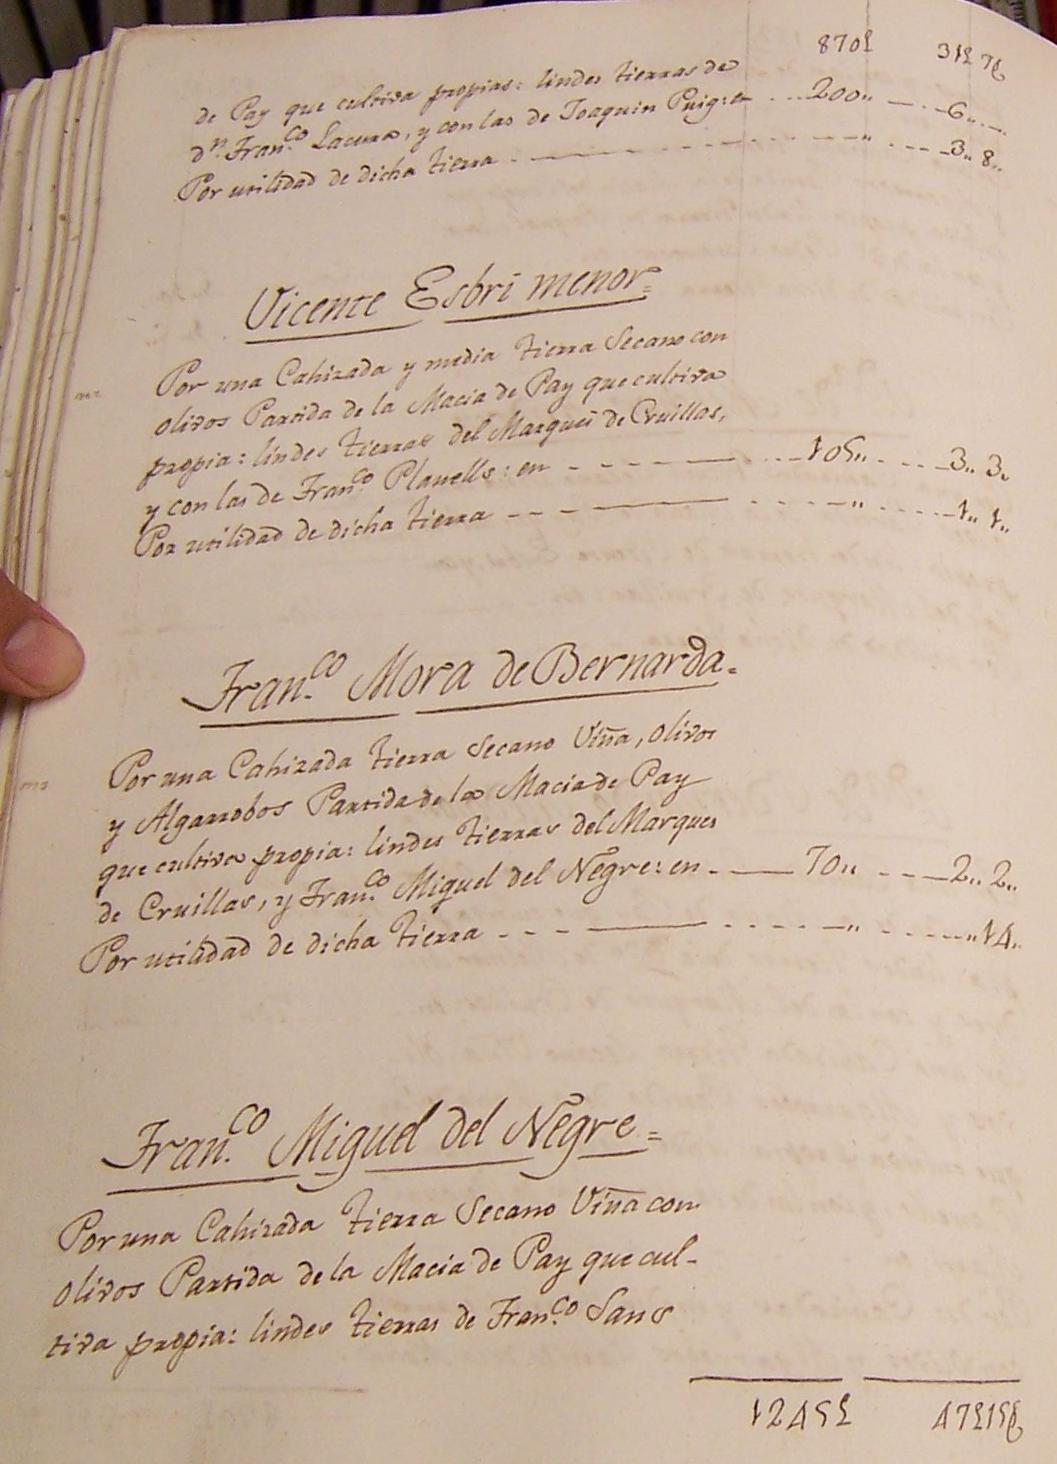 870£ 31£ 7ɖ
de Pay que cultiva propias: lindes tierras de
dn. Fran.co Lacura, y con las de Joaquin Puig: en ... 200,, — . 6,, .—.
Por utilidad de dicha tierra . — — — . . . — ,, . - - - 3,, 8,,
Vicente Esbri menor=
Por una Cahizada y media tierra Secano con
olivos Partida de la Macia de Pay que cultiva
propia: lindes tierras del Marques de Cruillas,
y con las de Fran.co Planells: en - - - — ... 105,, . - - - 3,, 3,,
Por utilidad de dicha tierra - - - — . . . . - ,, . . . . - 1,, 1,,
Fran.co Mora de Bernarda.=
Por una Cahizada tierra Secano Viña, olivos
y Algarrobos Partida de la Macia de Pay
que cultiva propia: lindes tierras del Marques
de Cruillas, y Fran.co Miguel del Negre: en - — 70,, - - — 2,, 2,,
Por utilidad de dicha tierra - - - — . . . - - - ,, . - - - ,, 14,,
Fran.co Miguel del Negre=
Por una Cahizada tierra Secano Viña con
olivos Partida de la Macia de Pay que cul-
tiva propia: lindes tierras de Fran.co Sans
1245£ 47£15ɖ